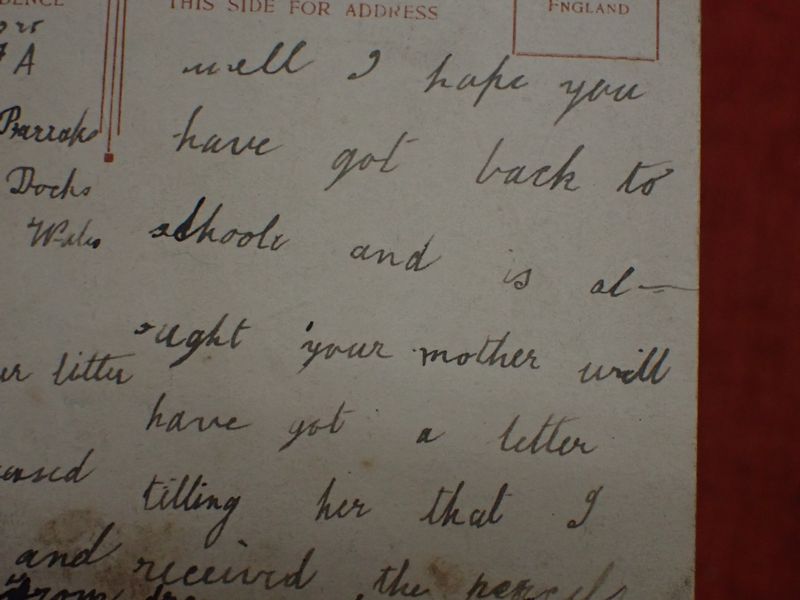 THIS SIDE FOR ADDRESS
ENGLAND
A
Barraks
Docks
Wales
litter
and
well I hope you
have got back to
schoole and is al-
ought your mother will
have got a letter
tilling her that I
received the percels
from